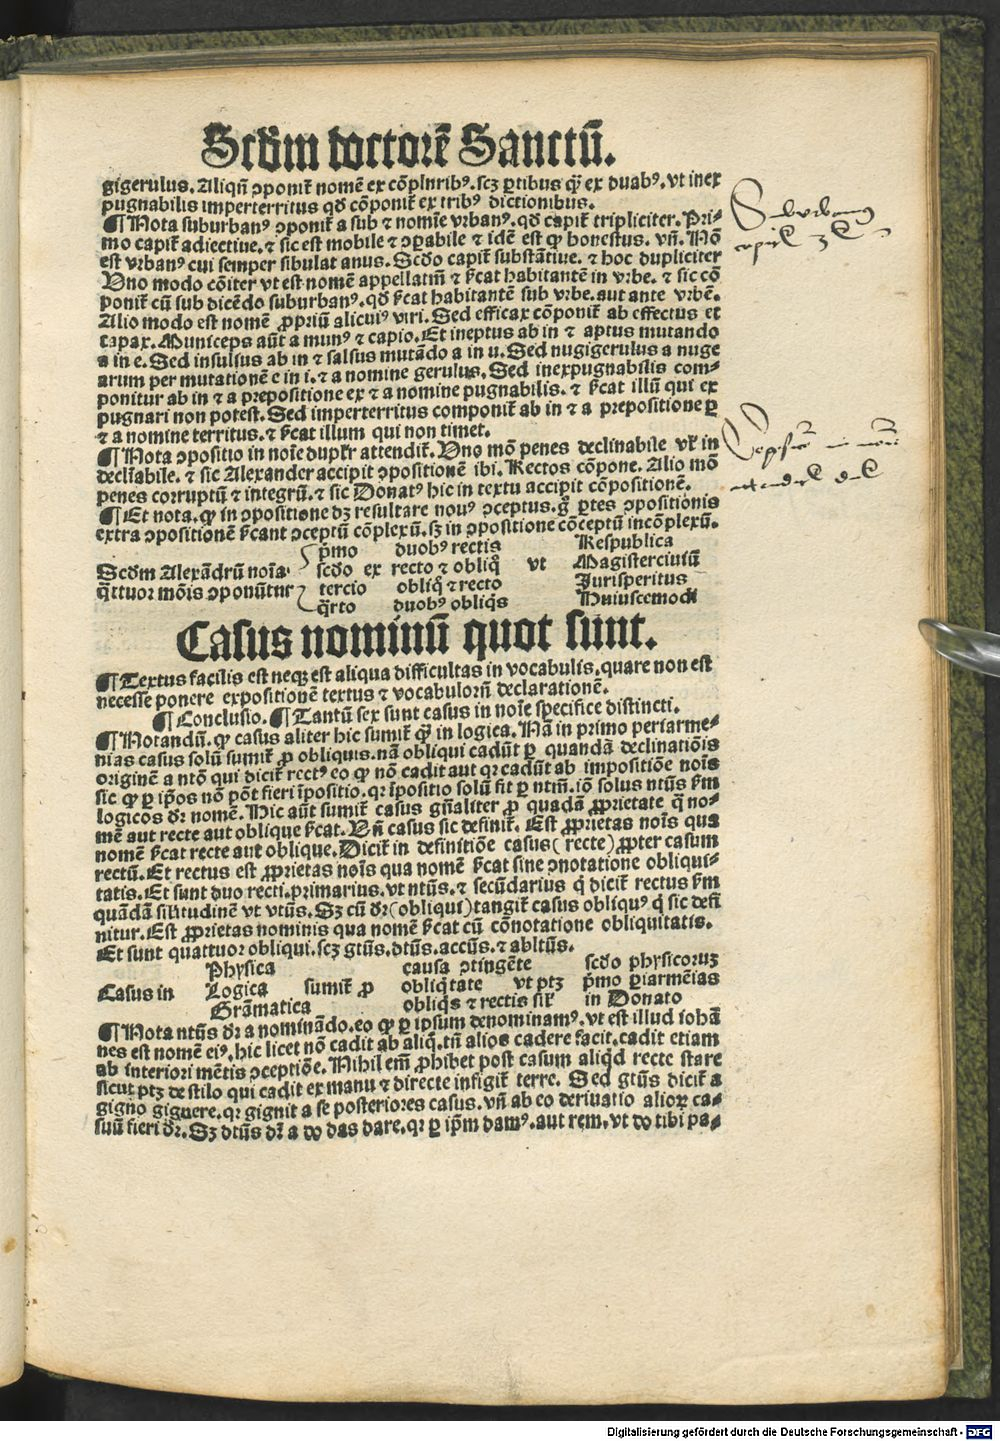 Scd̄m doctorē Sanctū.
gigerulus. Aliqn̄ ꝯponit᷑ nomē ex cōplurib⁹. scꝫ ꝑtibus qᷓꝫ ex duab⁹. vt inex
pugnabilis imperterritus qd̄ cōponit᷑ ex trib⁹ dictionibus.
¶ Nota suburban⁹ ꝯponit᷑ a sub ⁊ nomīe vrban⁹. qd̄ capit᷑ tripliciter. Pri⸗
mo capit᷑ adiectiue. ⁊ sic est mobile ⁊ ꝯꝑabile ⁊ idē est ꝙ honestus. vn̄. Nō
est vrban⁹ cui semper sibulat anus. Scd̄o capit᷑ substātiue. ⁊ hoc dupliciter
Uno modo cōiter vt est nomē appellatiū ⁊ s̄cat habitantē in vrbe. ⁊ sic cō
ponit᷑ cū sub dicēdo suburban⁹. qd̄ s̄cat habitantē sub vrbe. aut ante vrbē.
Alio modo est nomē ꝓpriū alicui⁹ viri. Sed efficax cōponit᷑ ab effectus et
capax. Municeps aūt a mun⁹ ⁊ capio. Et ineptus ab in ⁊ aptus mutando
a in e. Sed insulsus ab in ⁊ salsus mutādo a in u. Sed nugigerulus a nuge
arum per mutationē e in i. ⁊ a nomine gerulus. Sed inexpugnabilis com⸗
ponitur ab in ⁊ a prepositione ex ⁊ a nomine pugnabilis. ⁊ s̄cat illū qui ex
pugnari non potest. Sed imperterritus componit᷑ ab in ⁊ a prepositione ꝑ
⁊ a nomine territus. ⁊ s̄cat illum qui non timet.
¶ Nota ꝯpositio in noīe dupl̄r attendit᷑. Uno mō penes declinabile vl̄ in
declīabile. ⁊ sic Alexander accipit ꝯpositionē ibi. Rectos cōpone. Alio mō
penes corruptū ⁊ integrū. ⁊ sic Donat⁹ hic in textu accipit cōpositionē.
¶ Et nota. ꝙ in ꝯpositione dꝫ resultare nou⁹ ꝯceptus. g̊ ꝑtes ꝯpositionis
extra ꝯpositionē s̄cant ꝯceptū cōplexū. sꝫ in ꝯpositione cōceptū incōplexū.
p̄mo duob⁹ rectis Respublica
Scd̄m Alexādrū noīa scd̄o ex recto ⁊ obliq̊ vt Magisterciuiū
q̄ttuor mōis ꝯponūtur tercio obliq̊ ⁊ recto Jurisperitus
q̄rto duob⁹ obliq̄s Huiuscemodi
Casus nominū quot sunt.
¶ Textus facilis est neqꝫ est aliqua difficultas in vocabulis. quare non est
necesse ponere expositionē textus ⁊ vocabulorū declarationē.
¶ Conclusio. ¶ Tantū sex sunt casus in noīe specifice distincti.
¶ Notandū. ꝙ casus aliter hic sumit᷑ qᷓꝫ in logica. Nā in primo periarme⸗
nias casus solū sumit᷑ ꝓ obliquis. nā obliqui cadūt ꝑ quandā declinatiōis
originē a ntō qui dicit᷑ rect⁹ eo ꝙ nō cadit aut qꝛ cadūt ab impositiōe noīs
sic ꝙ ꝑ ip̄os nō pōt fieri īpositio. qꝛ īpositio solū fit ꝑ ntm̄. iō solus ntūs s̄m
logicos dr̄ nomē. Hic aūt sumit᷑ casus gn̄aliter ꝓ quadā ꝓprietate q̄ no⸗
mē aut recte aut oblique s̄cat. Un̄ casus sic definit᷑. Est ꝓprietas noīs qua
nomē s̄cat recte aut oblique. Dicit᷑ in definitiōe casus (recte) ꝓpter casum
rectū. Et rectus est ꝓprietas noīs qua nomē s̄cat sine ꝯnotatione obliqui⸗
tatis. Et sunt duo recti. primarius. vt ntūs. ⁊ secūdarius q̇ dicit᷑ rectus s̄m
quādā sil̄itudinē vt vtūs. Sꝫ cū dr̄ (obliqui) tangit᷑ casus obliqu⁹ q̇ sic defi
nitur. Est ꝓprietas nominis qua nomē s̄cat cū cōnotatione obliquitatis.
Et sunt quattuor obliqui. scꝫ gtūs. dtūs. accūs. ⁊ abltūs.
Physica causa ꝯtingēte scd̄o physicoruꝫ
Casus in Logica sumit᷑ ꝓ obliq̄tate vt ptꝫ p̄mo ꝑiarmēias
Grāmatica obliq̄s ⁊ rectis sil̄ in Donato
¶ Nota ntūs dr̄ a nomināndo. eo ꝙ ꝑ ipsum denominam⁹. vt est illud iohā
nes est nomē ei⁹. hic licet nō cadit ab aliq̊. tn̄ alios cadere facit. cadit etiam
ab interiori mētis ꝯceptiōe. Nihil em̄ ꝓhibet post casum aliq̊d recte stare
sicut ptꝫ de stilo qui cadit ex manu ⁊ directe infigit᷑ terre. Sed gtūs dicit᷑ a
gigno gignere. qꝛ gignit a se posteriores casus. vn̄ ab eo deriuatio alioꝝ ca⸗
suū fieri dr̄. Sꝫ dtūs dr̄ a do das dare. qꝛ ꝑ ip̄m dam⁹. aut rem. vt do tibi pa⸗
Digitalisierung gefördert durch die Deutsche Forschungsgemeinschaft - DFG